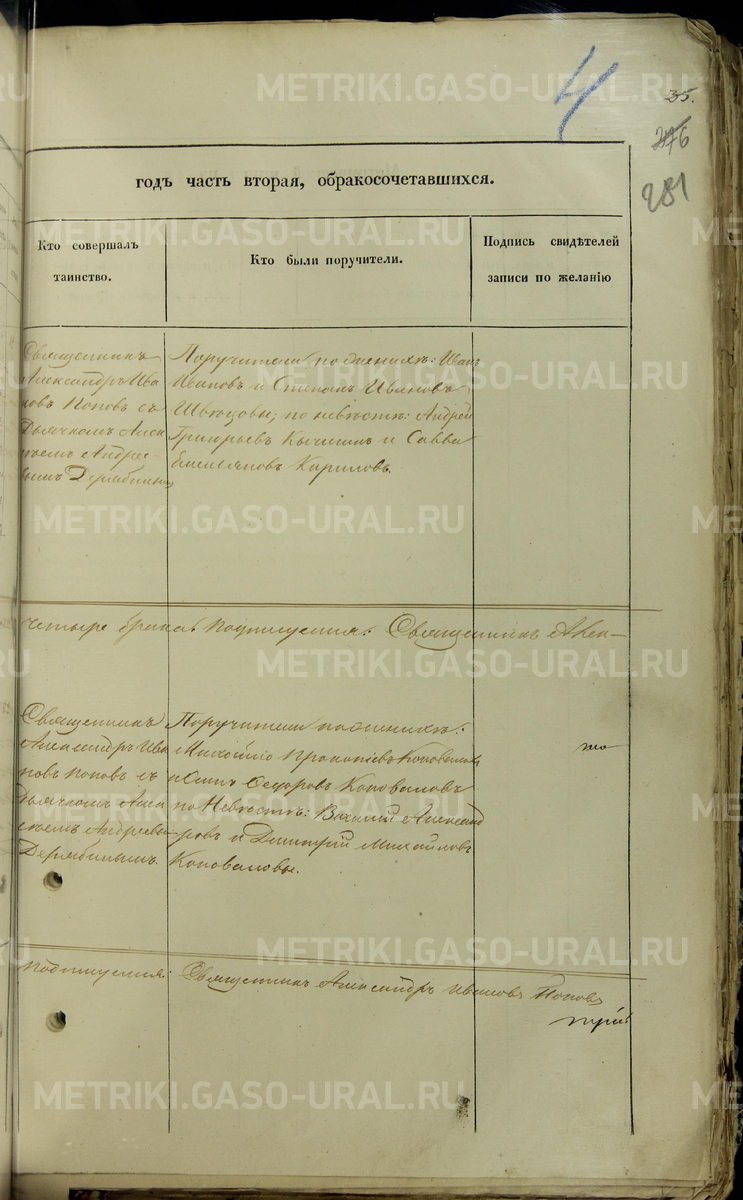 4
35.
376
281
годъ часть вторая, обракосочетавшихся.
Кто совершалъ
таинство.
Кто были поручители.
Подпись свидѣтелей
записи по желанію
Священникъ
Александръ Ива
новъ Поповъ съ
Дьячкомъ Алек
сѣемъ Андрее-
вымъ Дерябинымъ
Поручители по женихѣ: Иванъ
Ивановъ и Степанъ Ивановъ
Швецовы; по невѣстѣ: Андрей
Григорьевъ Кичигинъ и Савва
Емельяновъ Кариловъ.
четыре брака. Подписуемся: Священникъ Алек-
Священникъ
Александръ Ива
новъ Поповъ съ
Дьячкомъ Алек
сѣемъ Андреевы-
Дерябинымъ.
Поручители по женихѣ:
Михайло Прокопіевъ Коноваловъ
Ѳедоровъ Коноваловъ
по Невѣстѣ: Василій Александ
ровъ и Дмитрій Михайловъ
Коноваловы.
Подписуемся: Священникъ Александръ Ивановъ Поповъ
METRIKI.GASO-URAL.RU